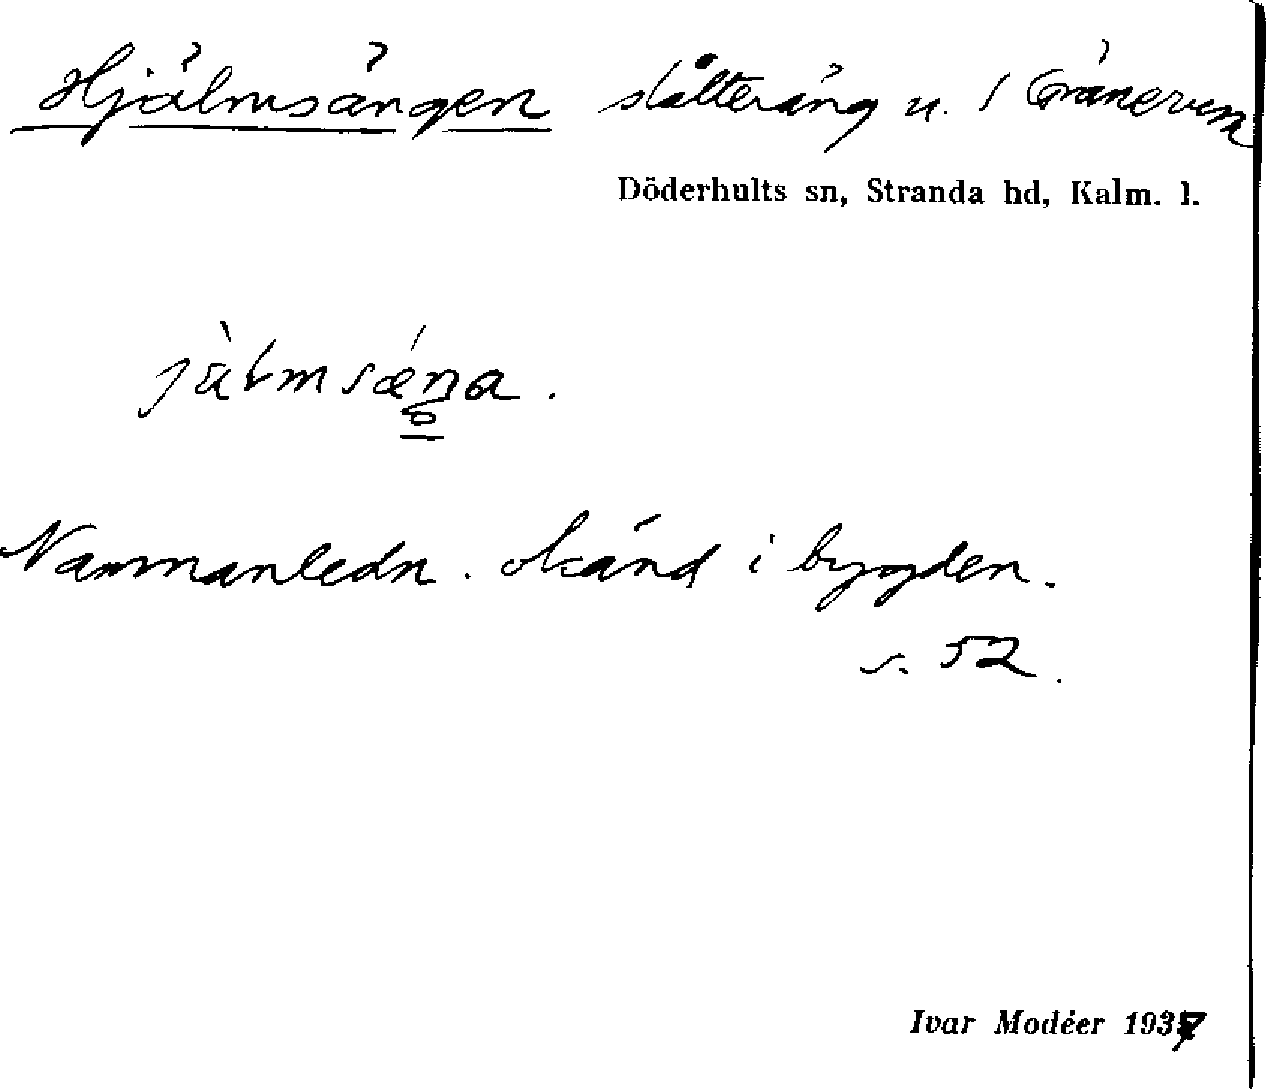 Hjälmsängen slåtteräng u. 1 Gränerum
Döderhults sn, Stranda hd, Kalm. l.
Namnanledn. okänd i bygden.
s. 52.
Ivar Modéer 1937